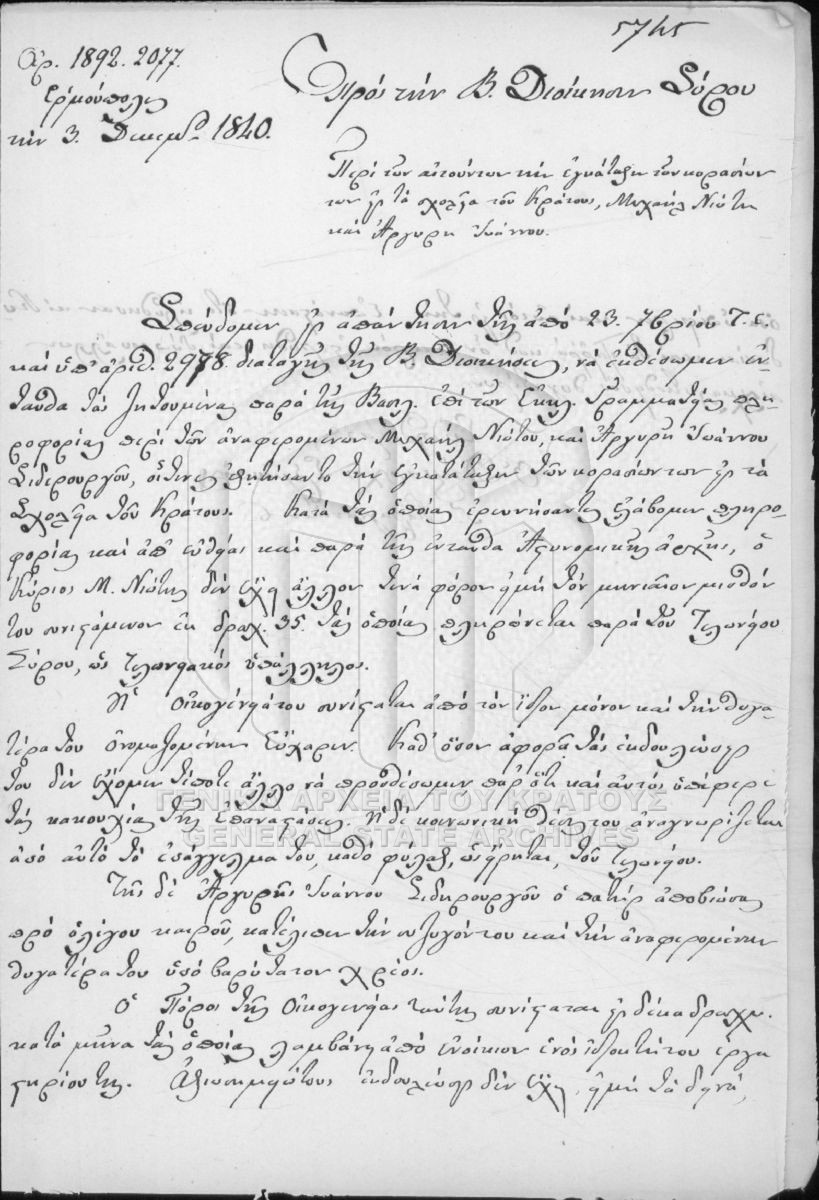 5745
Ἀρ. 1892. 2077.
Ἑρμούπολις
τὴν 3. Δεκεμβ. 1840.
Πρὸς τὴν Β. Διοίκησιν Σύρου
Περὶ τῶν αἰτούντων τὴν ἐγκατάταξιν τῶν κορασίων
των εἰς τὰ σχολεῖα τοῦ Κράτους, Μιχαὴλ Νιότη
καὶ Ἀργυρῆ Ἰωάννου.
Σπεύδομεν εἰς ἀπάντησιν τῆς ἀπὸ 23. 7βρίου τ. ἔ.
καὶ ὑπ' ἀριθ. 2978. διαταγῆς τῆς Β. Διοικήσεως, νὰ ἐκθέσωμεν ἐν-
ταῦθα τὰς ζητουμένας παρὰ τῆς Βασιλ. ἐπὶ τῶν Ἐκκλ. Γραμματείας πλη-
ροφορίας περὶ τῶν ἀναφερομένων Μιχαὴλ Νιότου, καὶ Ἀργυρῆ Ἰωάννου
Σιδερουργοῦ, οἵτινες ἐζητήσαντο τὴν ἐγκατάταξιν τῶν κορασίων των εἰς τὰ
Σχολεῖα τοῦ Κράτους. Κατὰ τὰς ὁποίας ἐρευνήσαντες ἐλάβομεν πληρο-
φορίας καὶ ἀπ' εὐθείας καὶ παρὰ τῆς ἐνταῦθα Ἀστυνομικῆς ἀρχῆς, ὁ
Κύριος Μ. Νιότης δὲν ἔχει ἄλλον τινὰ πόρον εἰμὴ τὸν μηνιαῖον μισθόν
του συνιστάμενον ἐκ δραχ. 35. τὰς ὁποίας πληρώνεται παρὰ τοῦ Τελωνείου
Σύρου, ὡς τελωνειακὸς ὑπάλληλος.
Ἡ Οἰκογένειά του συνίσταται ἀπὸ τὸν ἴδιον μόνον καὶ τὴν θυγα-
τέρα του ὀνομαζομένην Εὔχαριν. Καθ' ὅσον ἀφορᾷ τὰς ἐκδουλεύσεις
του δὲν ἔχομεν τίποτε ἄλλο νὰ προσθέσωμεν παρ' ὅτι καὶ αὐτὸς ὑπέφερε
τὰς κακουχίας τῆς Ἐπαναστάσεως. Ἡ δὲ κοινωνικὴ θέσις του ἀναγνωρίζεται
ἀπὸ αὐτὸ τὸ ἐπάγγελμά του, καθὸ φύλαξ, ὡς εἴρηται, τοῦ Τελωνείου.
Τῆς δὲ Ἀργυρῆς Ἰωάννου Σιδηρουργοῦ ὁ πατὴρ ἀποβιώσας
πρὸ ὀλίγου καιροῦ, κατέλιπεν τὴν συζυγόν του καὶ τὴν ἀναφερομένην
θυγατέρα του ὑπὸ βαρύτατον χρέος.
Ὁ Πόρος τῆς Οἰκογενείας ταύτης συνίσταται εἰς δέκα δραχμ.
κατὰ μῆνα τὰς ὁποίας λαμβάνει ἀπὸ ἐνοίκιον ἑνὸς ἰδιοκτήτου ἐργα
στηρίου της. Ἀξιοσημειώτους ἐκδουλεύσεις δὲν ἔχει, εἰμὴ τὰ δεινά,
ΓΕΝΙΚΑ ΑΡΧΕΙΑ ΤΟΥ ΚΡΑΤΟΥΣ
GENERAL STATE ARCHIVES